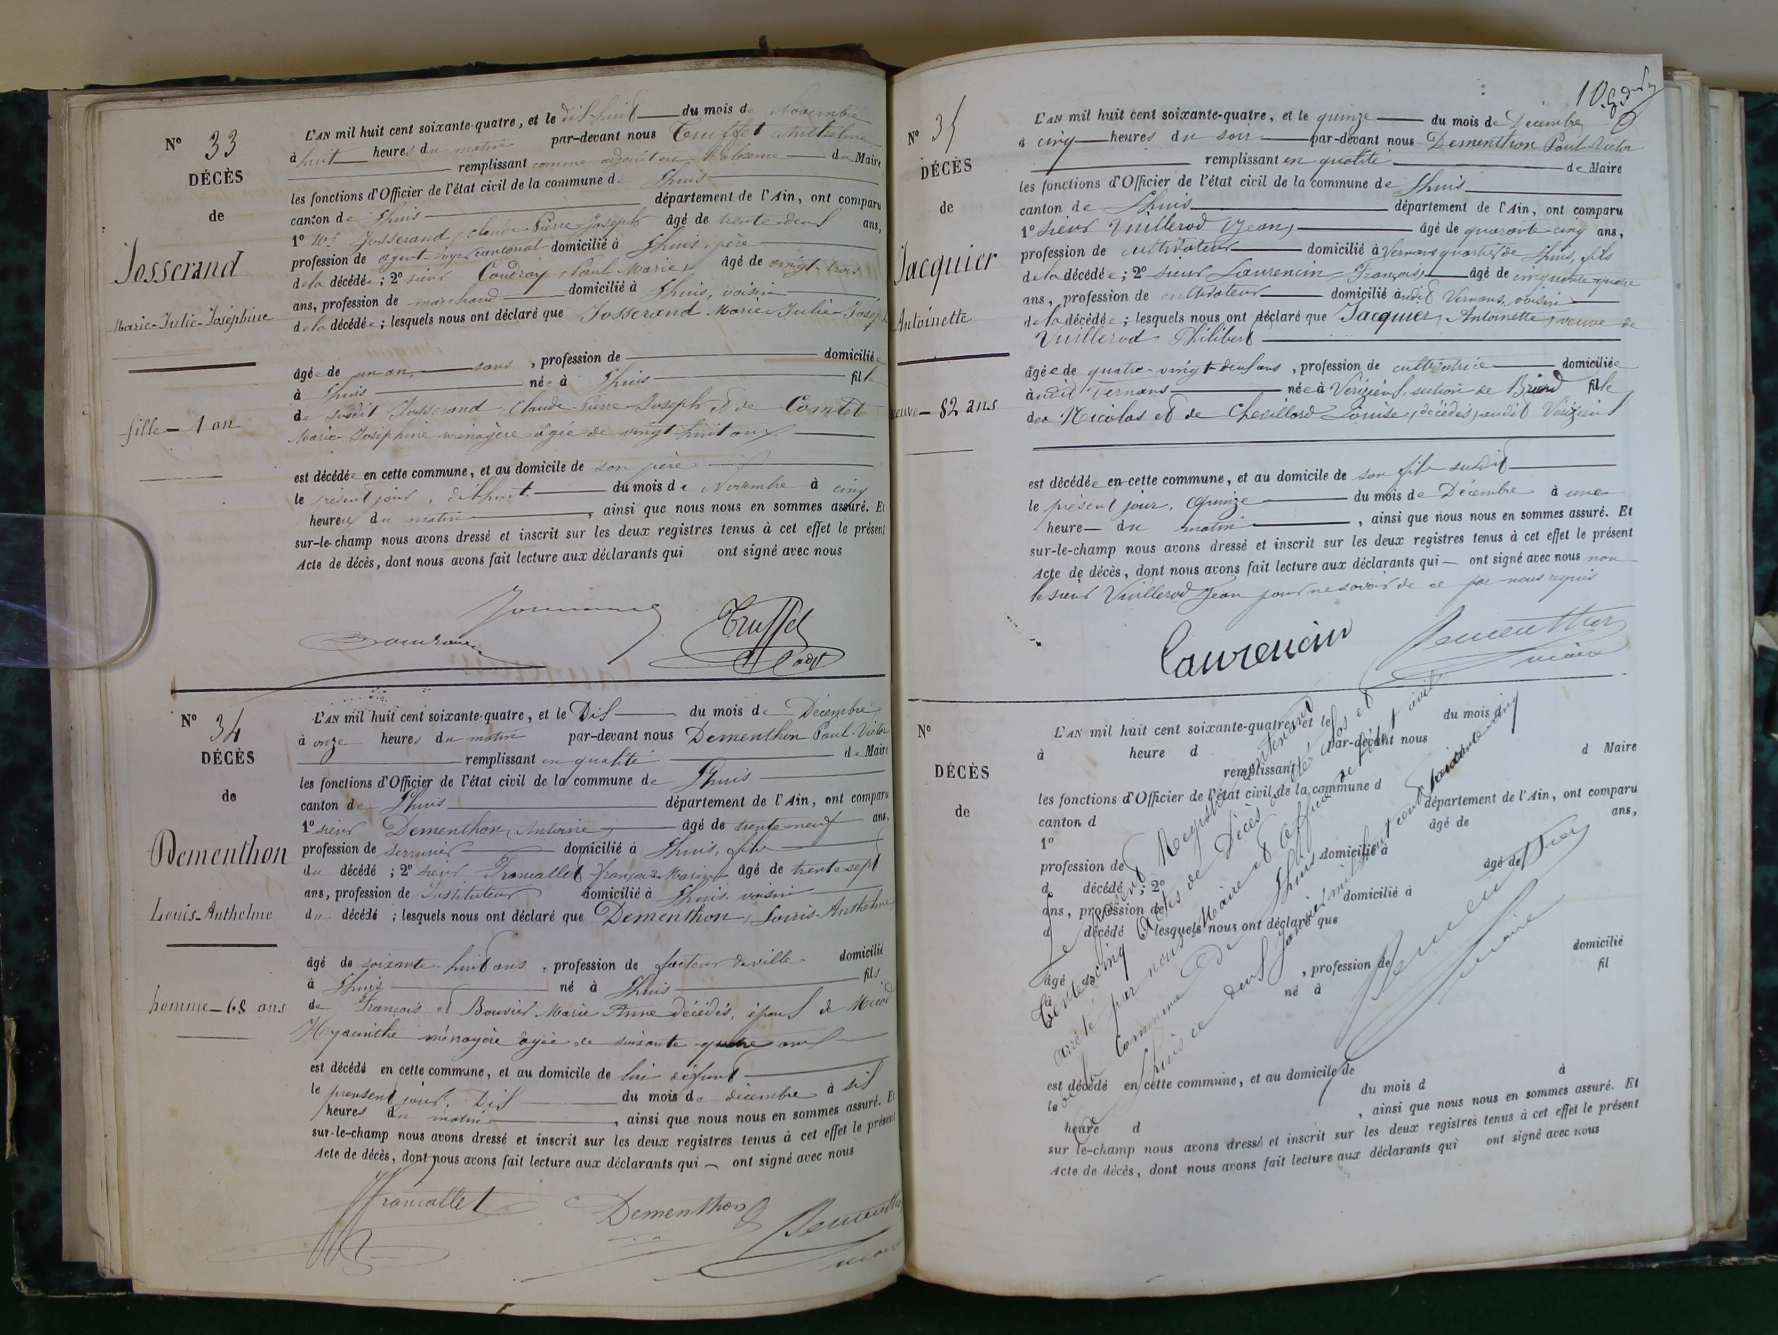 N° 33
DÉCÈS
de
Josserand
Marie-Julie-Joséphine
fille — 1 an
L'AN mil huit cent soixante-quatre, et le dix-huit du mois de Novembre
à huit heures du matin par-devant nous Truffet Anthelme
remplissant comme adjoint en l'absence du Maire
les fonctions d'Officier de l'état civil de la commune de Lhuis
canton de Lhuis département de l'Ain, ont comparu
1° Josserand, Claude-Pierre-Joseph âgé de trente-deux ans,
profession de agent voyer cantonal domicilié à Lhuis, père
de la décédée; 2° sieur Coudray Paul Marie, âgé de vingt-trois
ans, profession de marchand domicilié à Lhuis, voisin
de la décédée; lesquels nous ont déclaré que Josserand Marie-Julie-Josép
âgée de un an, sans, profession de domiciliée
à Lhuis née à Lhuis fille
de susdit Josserand Claude-Pierre-Joseph et de Comtet
Marie-Joséphine ménagère âgée de vingt-huit ans.
est décédée en cette commune, et au domicile de son père
le présent jour, dix-huit du mois de Novembre à cinq
heures du matin, ainsi que nous nous en sommes assuré. Et
sur-le-champ nous avons dressé et inscrit sur les deux registres tenus à cet effet le présent
Acte de décès, dont nous avons fait lecture aux déclarants qui ont signé avec nous
Truffet
adjt
N° 34
DÉCÈS
de
Dementhon
Louis-Anthelme
homme — 68 ans
L'AN mil huit cent soixante-quatre, et le Dix du mois de Décembre
à onze heures du matin par-devant nous Dementhon Paul-Victor
remplissant en qualité de Maire
les fonctions d'Officier de l'état civil de la commune de Lhuis
canton de Lhuis département de l'Ain, ont comparu
1° sieur Dementhon, Antoine, âgé de trente-neuf ans,
profession de serrurier domicilié à Lhuis, fils
du décédé; 2° sieur Troncallet François Marie âgé de trente-sept
ans, profession de Instituteur domicilié à Lhuis, voisin
du décédé; lesquels nous ont déclaré que Dementhon, Louis-Anthelme
âgé de soixante-huit ans, profession de facteur de ville domicilié
à Lhuis né à Lhuis fils
de François et Bouvier Marie Anne décédés, époux de Micod
Hyacinthe ménagère âgée de soixante-quatre ans
est décédé en cette commune, et au domicile de lui défunt
le present jour, Dix du mois de décembre à six
heures du matin, ainsi que nous nous en sommes assuré. Et
sur-le-champ nous avons dressé et inscrit sur les deux registres tenus à cet effet le présent
Acte de décès, dont nous avons fait lecture aux déclarants qui — ont signé avec nous
Troncallet Dementhon Dementhon
maire
10
N° 35
DÉCÈS
de
Jacquier
Antoinette
veuve — 82 ans
L'AN mil huit cent soixante-quatre, et le quinze du mois de Décembre
à cinq heures du soir par-devant nous Dementhon Paul-Victor
remplissant en qualité de Maire
les fonctions d'Officier de l'état civil de la commune de Lhuis
canton de Lhuis département de l'Ain, ont comparu
1° sieur Vuillerod Jean, âgé de quarante-cinq ans,
profession de cultivateur domicilié à Vernans quartier de Lhuis, fils
de la décédée; 2° sieur Laurencin François, âgé de cinquante-quatre
ans, profession de cultivateur domicilié audit Vernans, voisin
de la décédée; lesquels nous ont déclaré que Jacquier, Antoinette, veuve de
Vuillerod Philibert
âgée de quatre-vingt deux ans, profession de cultivatrice domiciliée
audit Vernans née à Vérizieu, section de Briord fille
de Nicolas et de Chevillard Louise, décédés, audit Vérizieu
est décédée en cette commune, et au domicile de son fils susdit
le présent jour, quinze du mois de Décembre à une
heure du matin, ainsi que nous nous en sommes assuré. Et
sur-le-champ nous avons dressé et inscrit sur les deux registres tenus à cet effet le présent
Acte de décès, dont nous avons fait lecture aux déclarants qui — ont signé avec nous non
le sieur Vuillerod Jean pour ne savoir de ce par nous requis
Laurencin Dementhon
maire
N°
DÉCÈS
de
L'AN mil huit cent soixante-quatre, et le du mois d
à heure d par-devant nous
remplissant d Maire
les fonctions d'Officier de l'état civil de la commune d
canton d département de l'Ain, ont comparu
1° âgé de ans,
profession de domicilié à
d décédé; 2° âgé de
ans, profession de domicilié à
d décédé lesquels nous ont déclaré que
âgé de, profession de domicilié
à né à fil
est décédé en cette commune, et au domicile de
le du mois d à
heure d, ainsi que nous nous en sommes assuré. Et
sur le-champ nous avons dressé et inscrit sur les deux registres tenus à cet effet le présent
Acte de décès, dont nous avons fait lecture aux déclarants qui ont signé avec nous
Le présent Registre contenant
trente cinq Actes de Décès a été clos et
arrêté par nous Maire et officier de l'état civil
de la Commune de Lhuis
Lhuis ce deux Janvier mil huit cent soixante cinq
Dementhon
maire